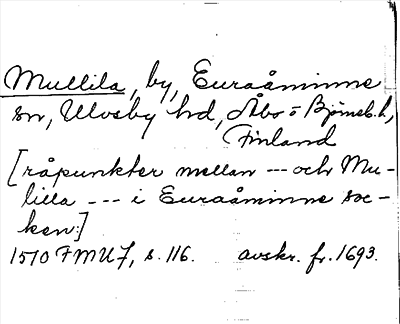 Mullila, by, Euraåminne
sn, Ulvsby hd, Åbo o Björneb. l.,
Finland
[råpunkter mellan --- och Mu-
lilla --- i Euraåminne soc-
ken:]
1510 FMU 7, s. 116. avskr. fr. 1693.